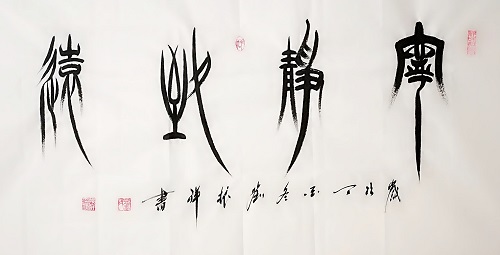 寧靜致遠
歲次丁酉冬振祥書